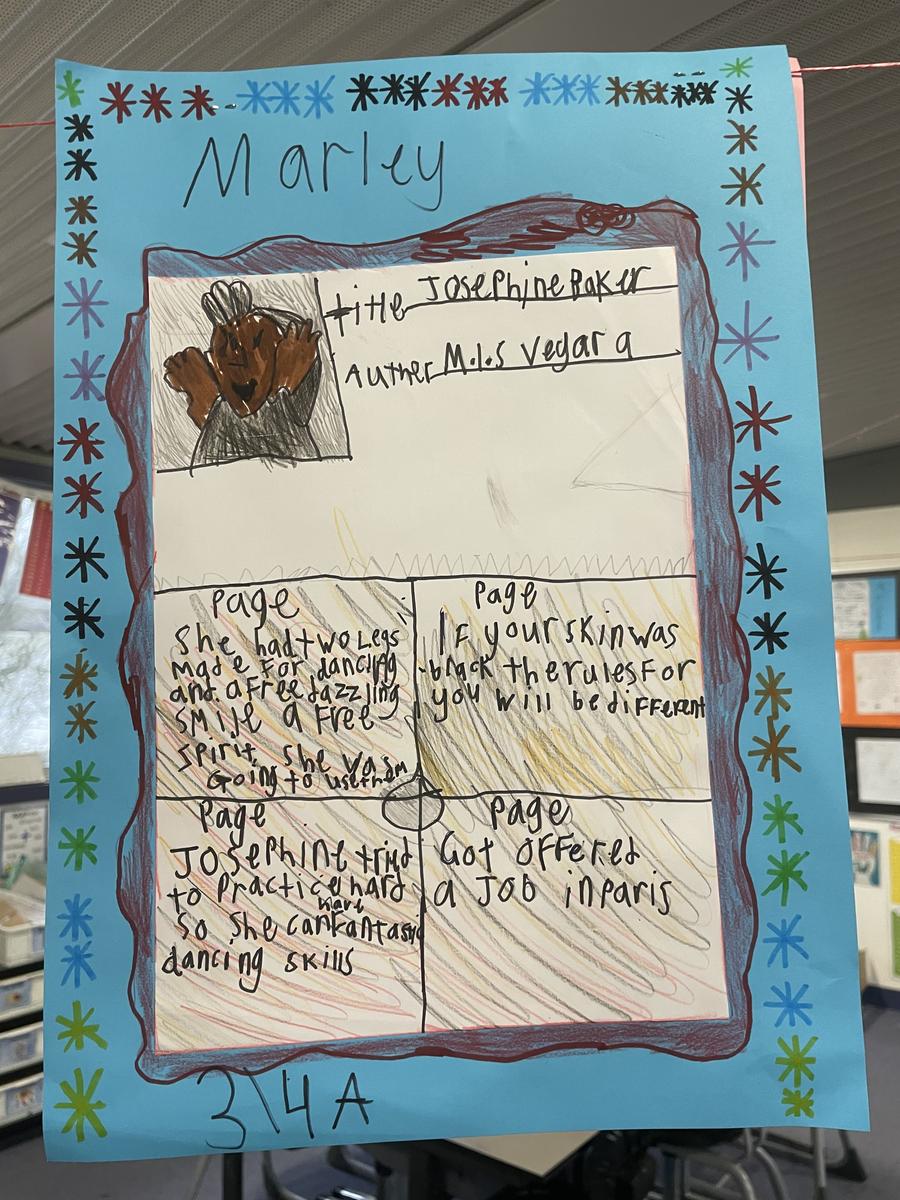 Marley
title Josephine Baker
Auther M.I.S Vegara
Page
She had two Legs
made for dancing
and a free dazzling
smile a free
spirit. she was
Going to use them
Page
If your skin was
black the rules for
you will be different
Page
Josephine tried
to Practice hard
have
so she can fantastic
dancing skills
Page
Got offered
a Job in paris
3\4A